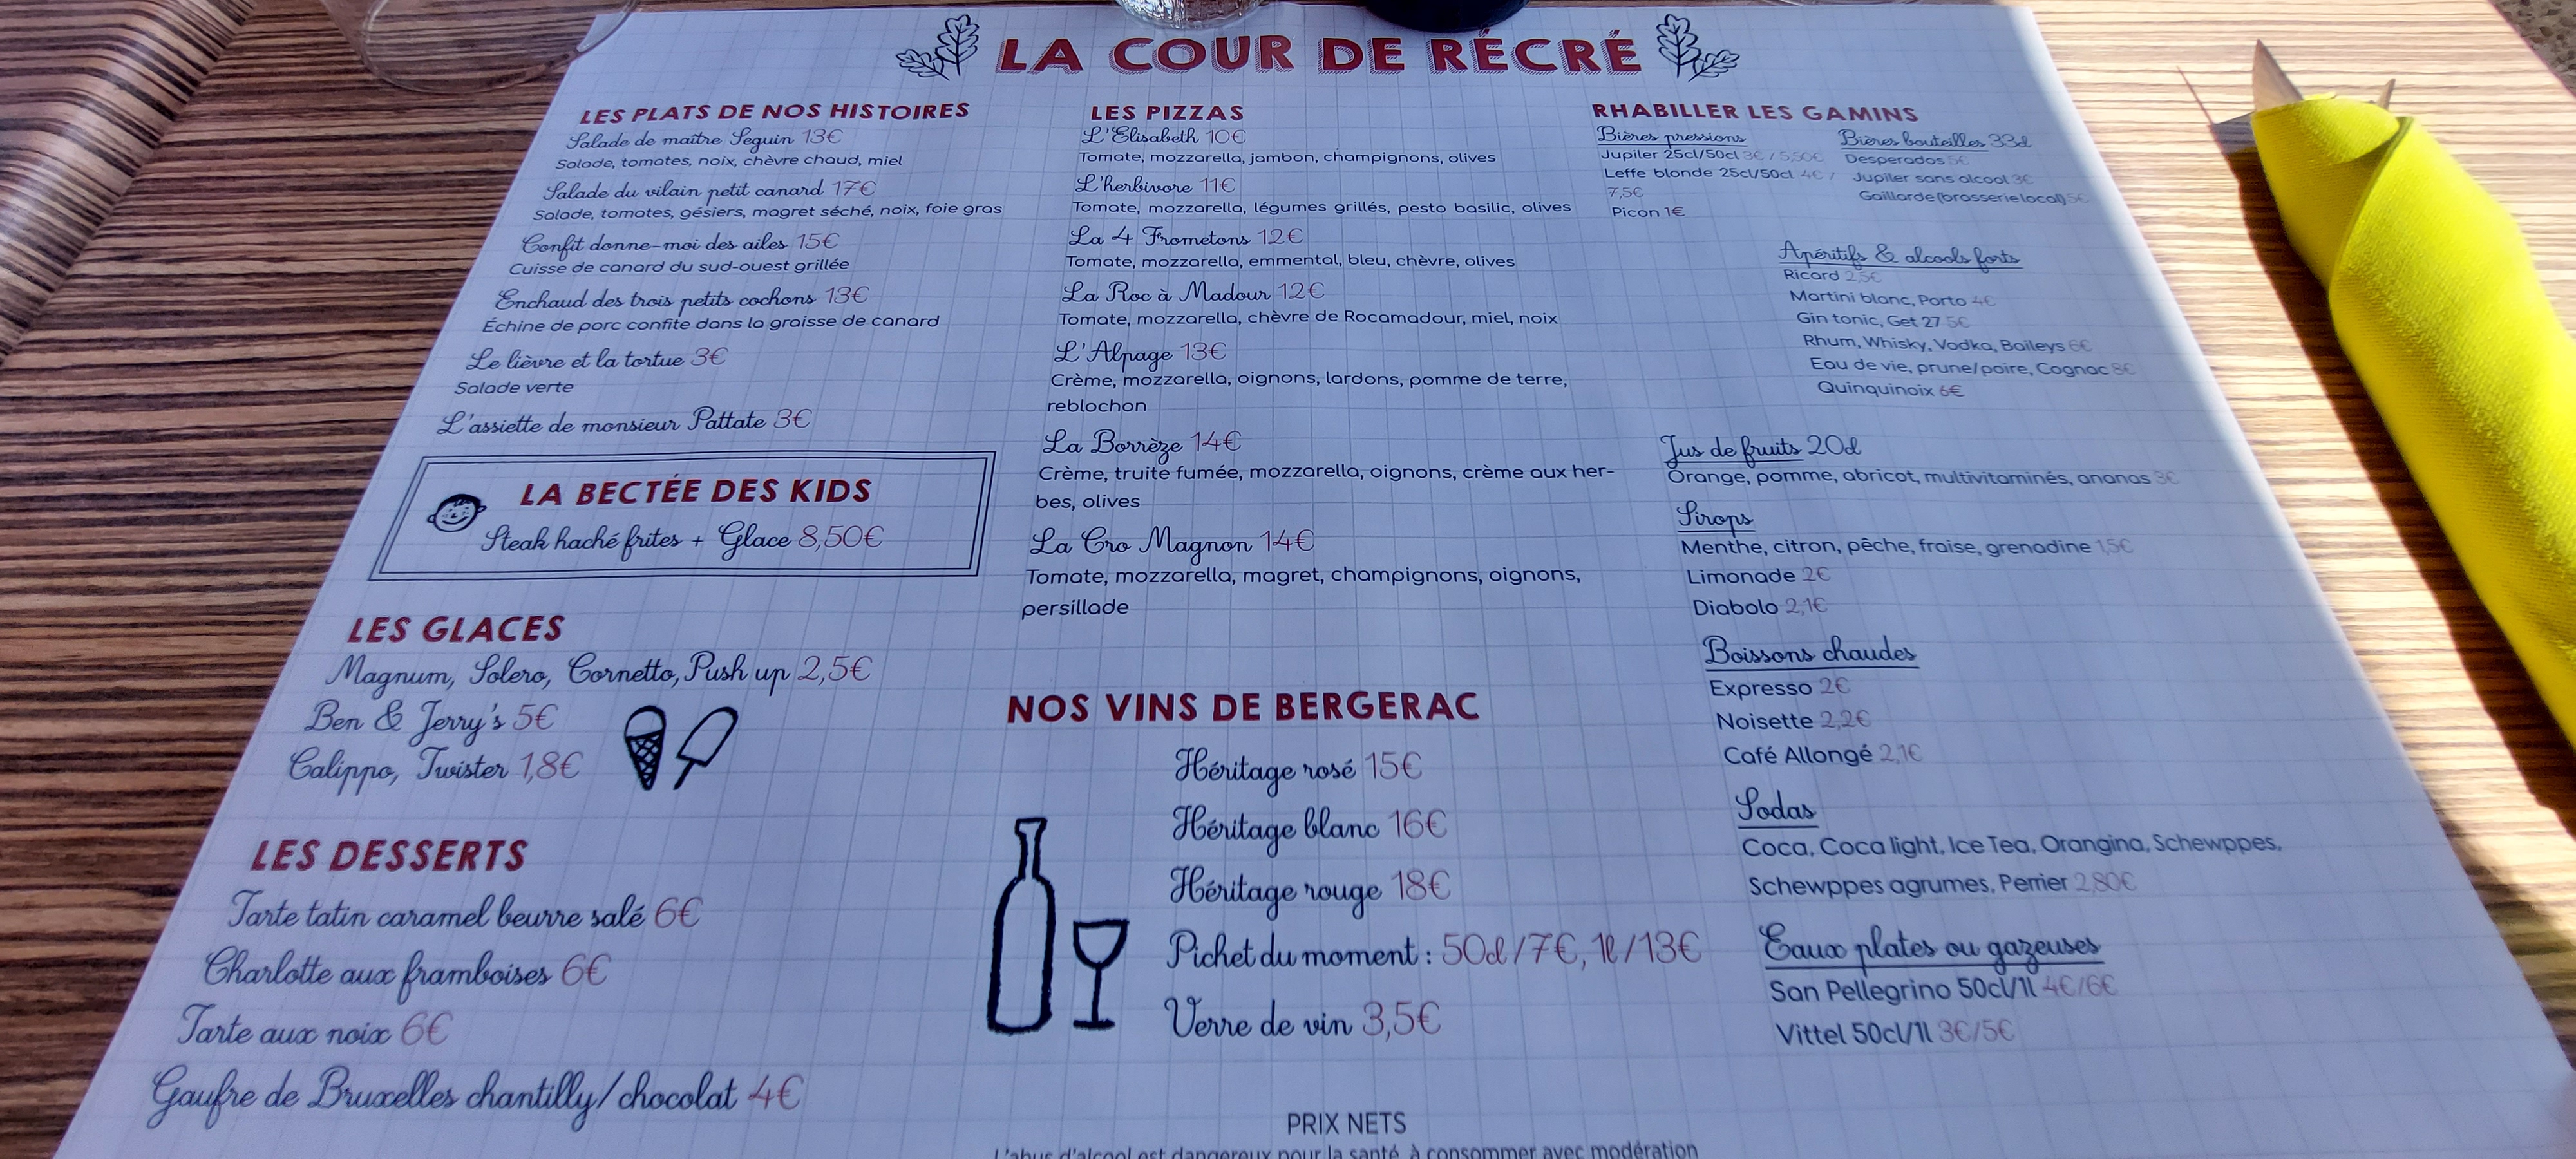 LA COUR DE RÉCRÉ
LES PLATS DE NOS HISTOIRES
Salade de maître Seguin 13€
Salade, tomates, noix, chèvre chaud, miel
Salade du vilain petit canard 17€
Salade, tomates, gésiers, magret séché, noix, foie gras
Confit donne-moi des ailes 15€
Cuisse de canard du sud-ouest grillée
Enchaud des trois petits cochons 13€
Échine de porc confite dans la graisse de canard
Le lièvre et la tortue 3€
Salade verte
L'assiette de monsieur Pattate 3€
LA BECTÉE DES KIDS
Steak haché frites + Glace 8,50€
LES GLACES
Magnum, Solero, Cornetto, Push up 2,5€
Ben & Jerry's 5€
Calippo, Twister 1,8€
LES DESSERTS
Tarte tatin caramel beurre salé 6€
Charlotte aux framboises 6€
Tarte aux noix 6€
Gaufre de Bruxelles chantilly/chocolat 4€
LES PIZZAS
L'Elisabeth 10€
Tomate, mozzarella, jambon, champignons, olives
L'herbivore 11€
Tomate, mozzarella, légumes grillés, pesto basilic, olives
La 4 Frometons 12€
Tomate, mozzarella, emmental, bleu, chèvre, olives
La Roc à Madour 12€
Tomate, mozzarella, chèvre de Rocamadour, miel, noix
L'Alpage 13€
Crème, mozzarella, oignons, lardons, pomme de terre,
reblochon
La Borrèze 14€
Crème, truite fumée, mozzarella, oignons, crème aux her-
bes, olives
La Cro Magnon 14€
Tomate, mozzarella, magret, champignons, oignons,
persillade
NOS VINS DE BERGERAC
Héritage rosé 15€
Héritage blanc 16€
Héritage rouge 18€
Pichet du moment : 50cl/7€, 1l/13€
Verre de vin 3,5€
RHABILLER LES GAMINS
Bières pressions
Jupiler 25cl/50cl 3€ / 5,50€
Leffe blonde 25cl/50cl 4€ /
7,5€
Picon 1€
Bières bouteilles 33cl
Desperados 5€
Jupiler sans alcool 3€
Gaillarde (brasserie local) 5€
Apéritifs & alcools forts
Ricard 2,5€
Martini blanc, Porto 4€
Gin tonic, Get 27 5€
Rhum, Whisky, Vodka, Baileys 6€
Eau de vie, prune/poire, Cognac 8€
Quinquinoix 6€
Jus de fruits 20cl
Orange, pomme, abricot, multivitaminés, ananas 3€
Sirops
Menthe, citron, pêche, fraise, grenadine 1,5€
Limonade 2€
Diabolo 2,1€
Boissons chaudes
Expresso 2€
Noisette 2,2€
Café Allongé 2,1€
Sodas
Coca, Coca light, Ice Tea, Orangina, Schewppes,
Schewppes agrumes, Perrier 2,80€
Eaux plates ou gazeuses
San Pellegrino 50cl/1l 4€/6€
Vittel 50cl/1l 3€/5€
PRIX NETS
L'abus d'alcool est dangereux pour la santé, à consommer avec modération